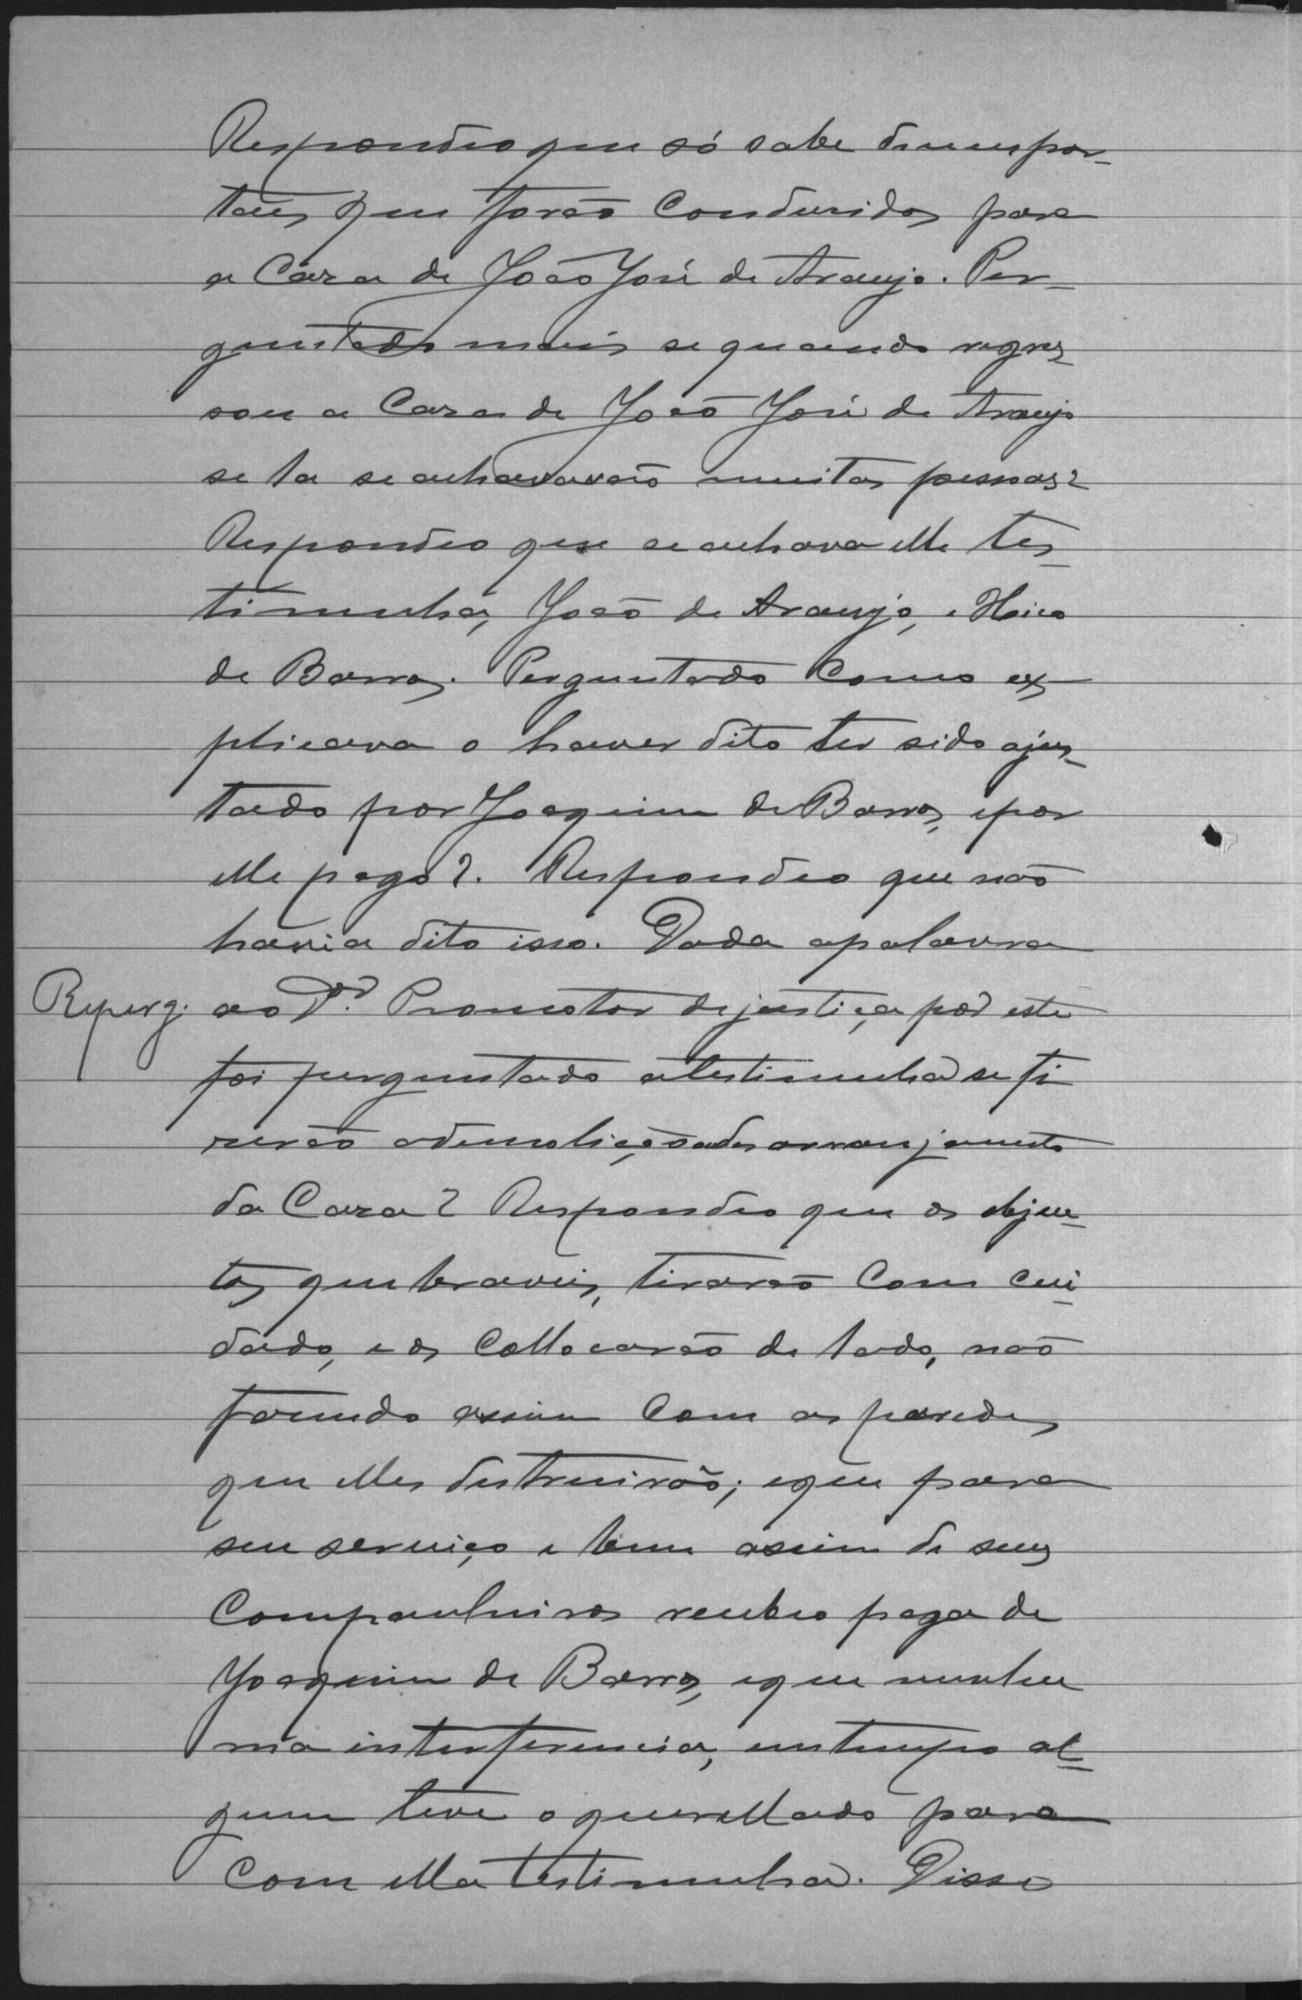 Respondeo que só sabe de um por-
taes que forão Condusidos para
a Caza de João José de Araujo. Per-
guntado mais se quando regres-
sou a Caza de João José de Araujo
se la se achavarão muitas pessoas?
Respondeo que se achava elle tes-
timunha, João de Araujo, e
de Barros. Perguntado Como ex-
plicava o haver dito ter sido ajus-
tado por Joaquim de Barros, e por
elle pago?. Respondeo que não
havia dito isso. Dada a palavra
Reperg. ao Dr. Promotor de justiça por este
foi perguntado a testimunha se fi
zerão a demolição e desarranjamento
da Caza? Respondeo que os objec-
tos quebraveis, tirarão Com cui-
dado, e os Collocarão de lado, não
fazendo assim Com as paredes
que elles destruirão; e que para
seu serviço e bem assim de seus
Companheiros recebeo paga de
Joaquim de Barros, e que nenhu
ma interferencia, em tempo al-
gum teve o querellado para
Com ella testimunha. Disse